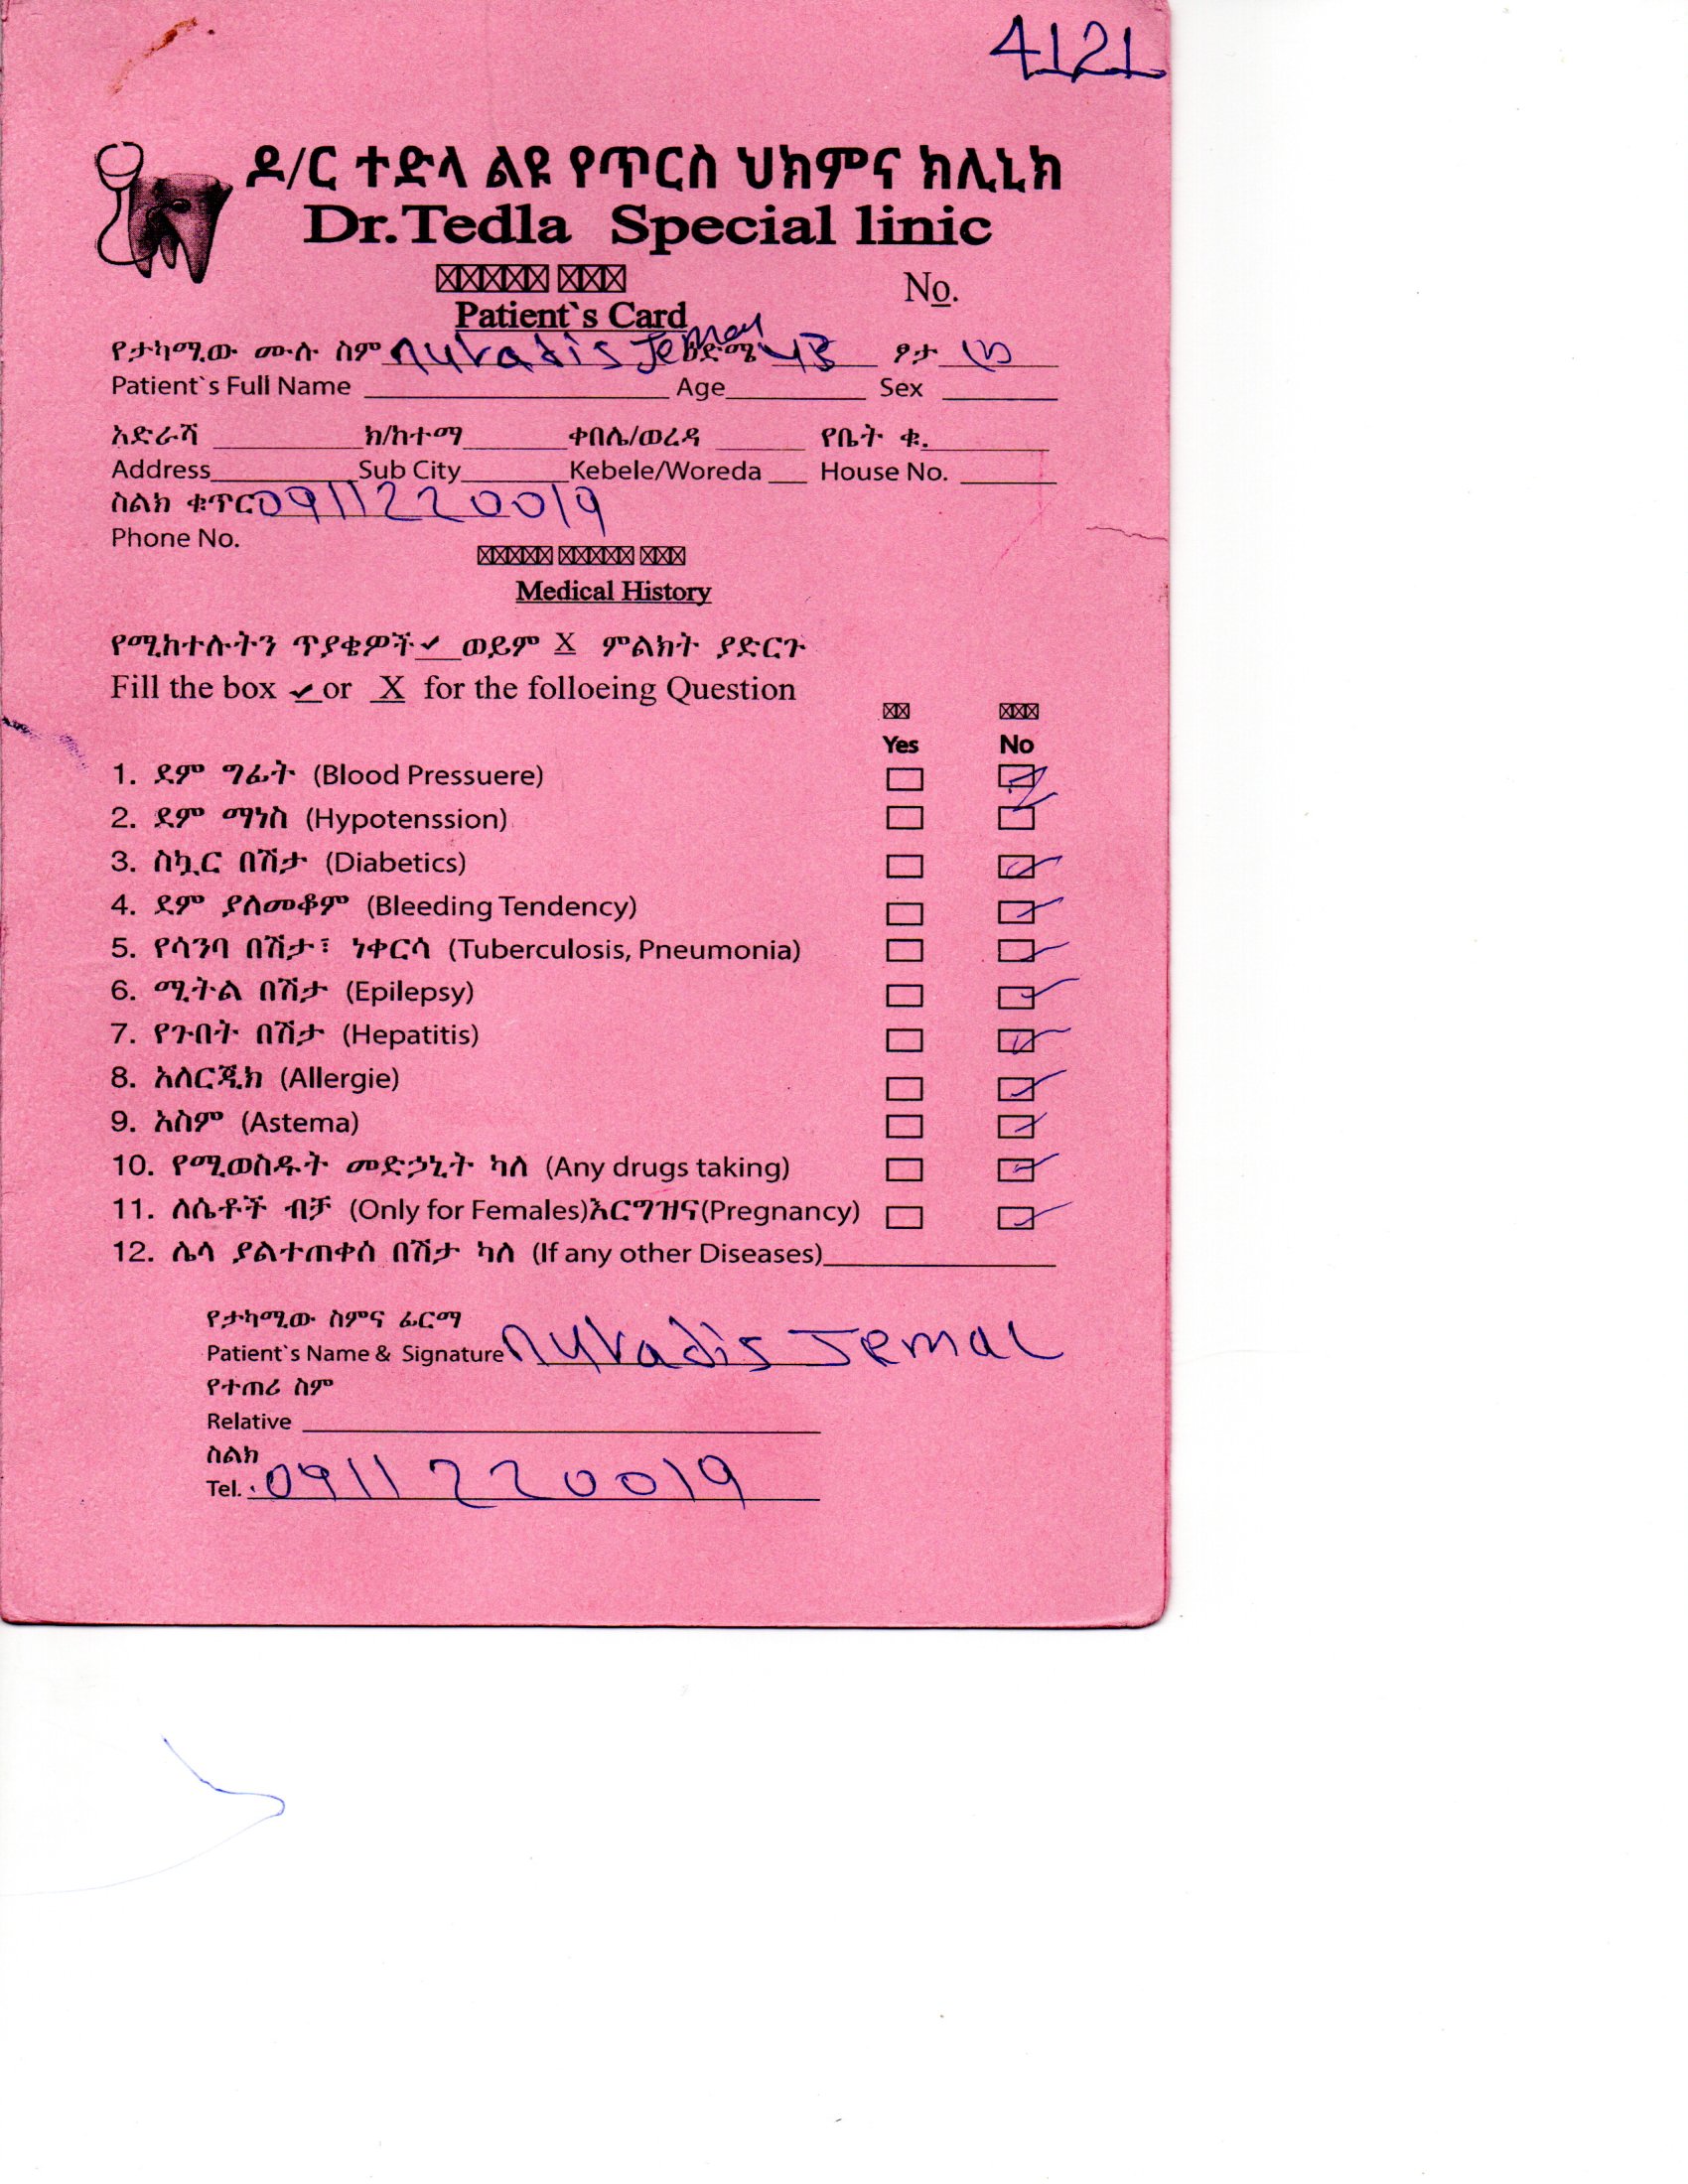 4121
ዶ/ር ተድላ ልዩ የጥርስ ህክምና ክሊኒክ
Dr.Tedla Special linic
No.
Patient`s Card
የታካሚው ሙሉ ስም nuradis Jemal ዕድሜ 43 ፆታ
Patient`s Full Name Age Sex
አድራሻ ክ/ከተማ ቀበሌ/ወረዳ የቤት ቁ.
Address Sub City Kebele/Woreda House No.
ስልክ ቁጥር 0911220019
Phone No.
Medical History
የሚከተሉትን ጥያቄዎች ✓ ወይም X ምልክት ያድርጉ
Fill the box ✓ or X for the folloeing Question
Yes No
1. ደም ግፊት (Blood Pressuere)
2. ደም ማነስ (Hypotenssion)
3. ስኳር በሽታ (Diabetics)
4. ደም ያለመቆም (Bleeding Tendency)
5. የሳንባ በሽታ፣ ነቀርሳ (Tuberculosis, Pneumonia)
6. ሚትል በሽታ (Epilepsy)
7. የጉበት በሽታ (Hepatitis)
8. አለርጂክ (Allergie)
9. አስም (Astema)
10. የሚወስዱት መድኃኒት ካለ (Any drugs taking)
11. ለሴቶች ብቻ (Only for Females)እርግዝና(Pregnancy)
12. ሌላ ያልተጠቀሰ በሽታ ካለ (If any other Diseases)
የታካሚው ስምና ፊርማ
Patient`s Name & Signature nuradis Jemal
የተጠሪ ስም
Relative
ስልክ
Tel. 0911220019